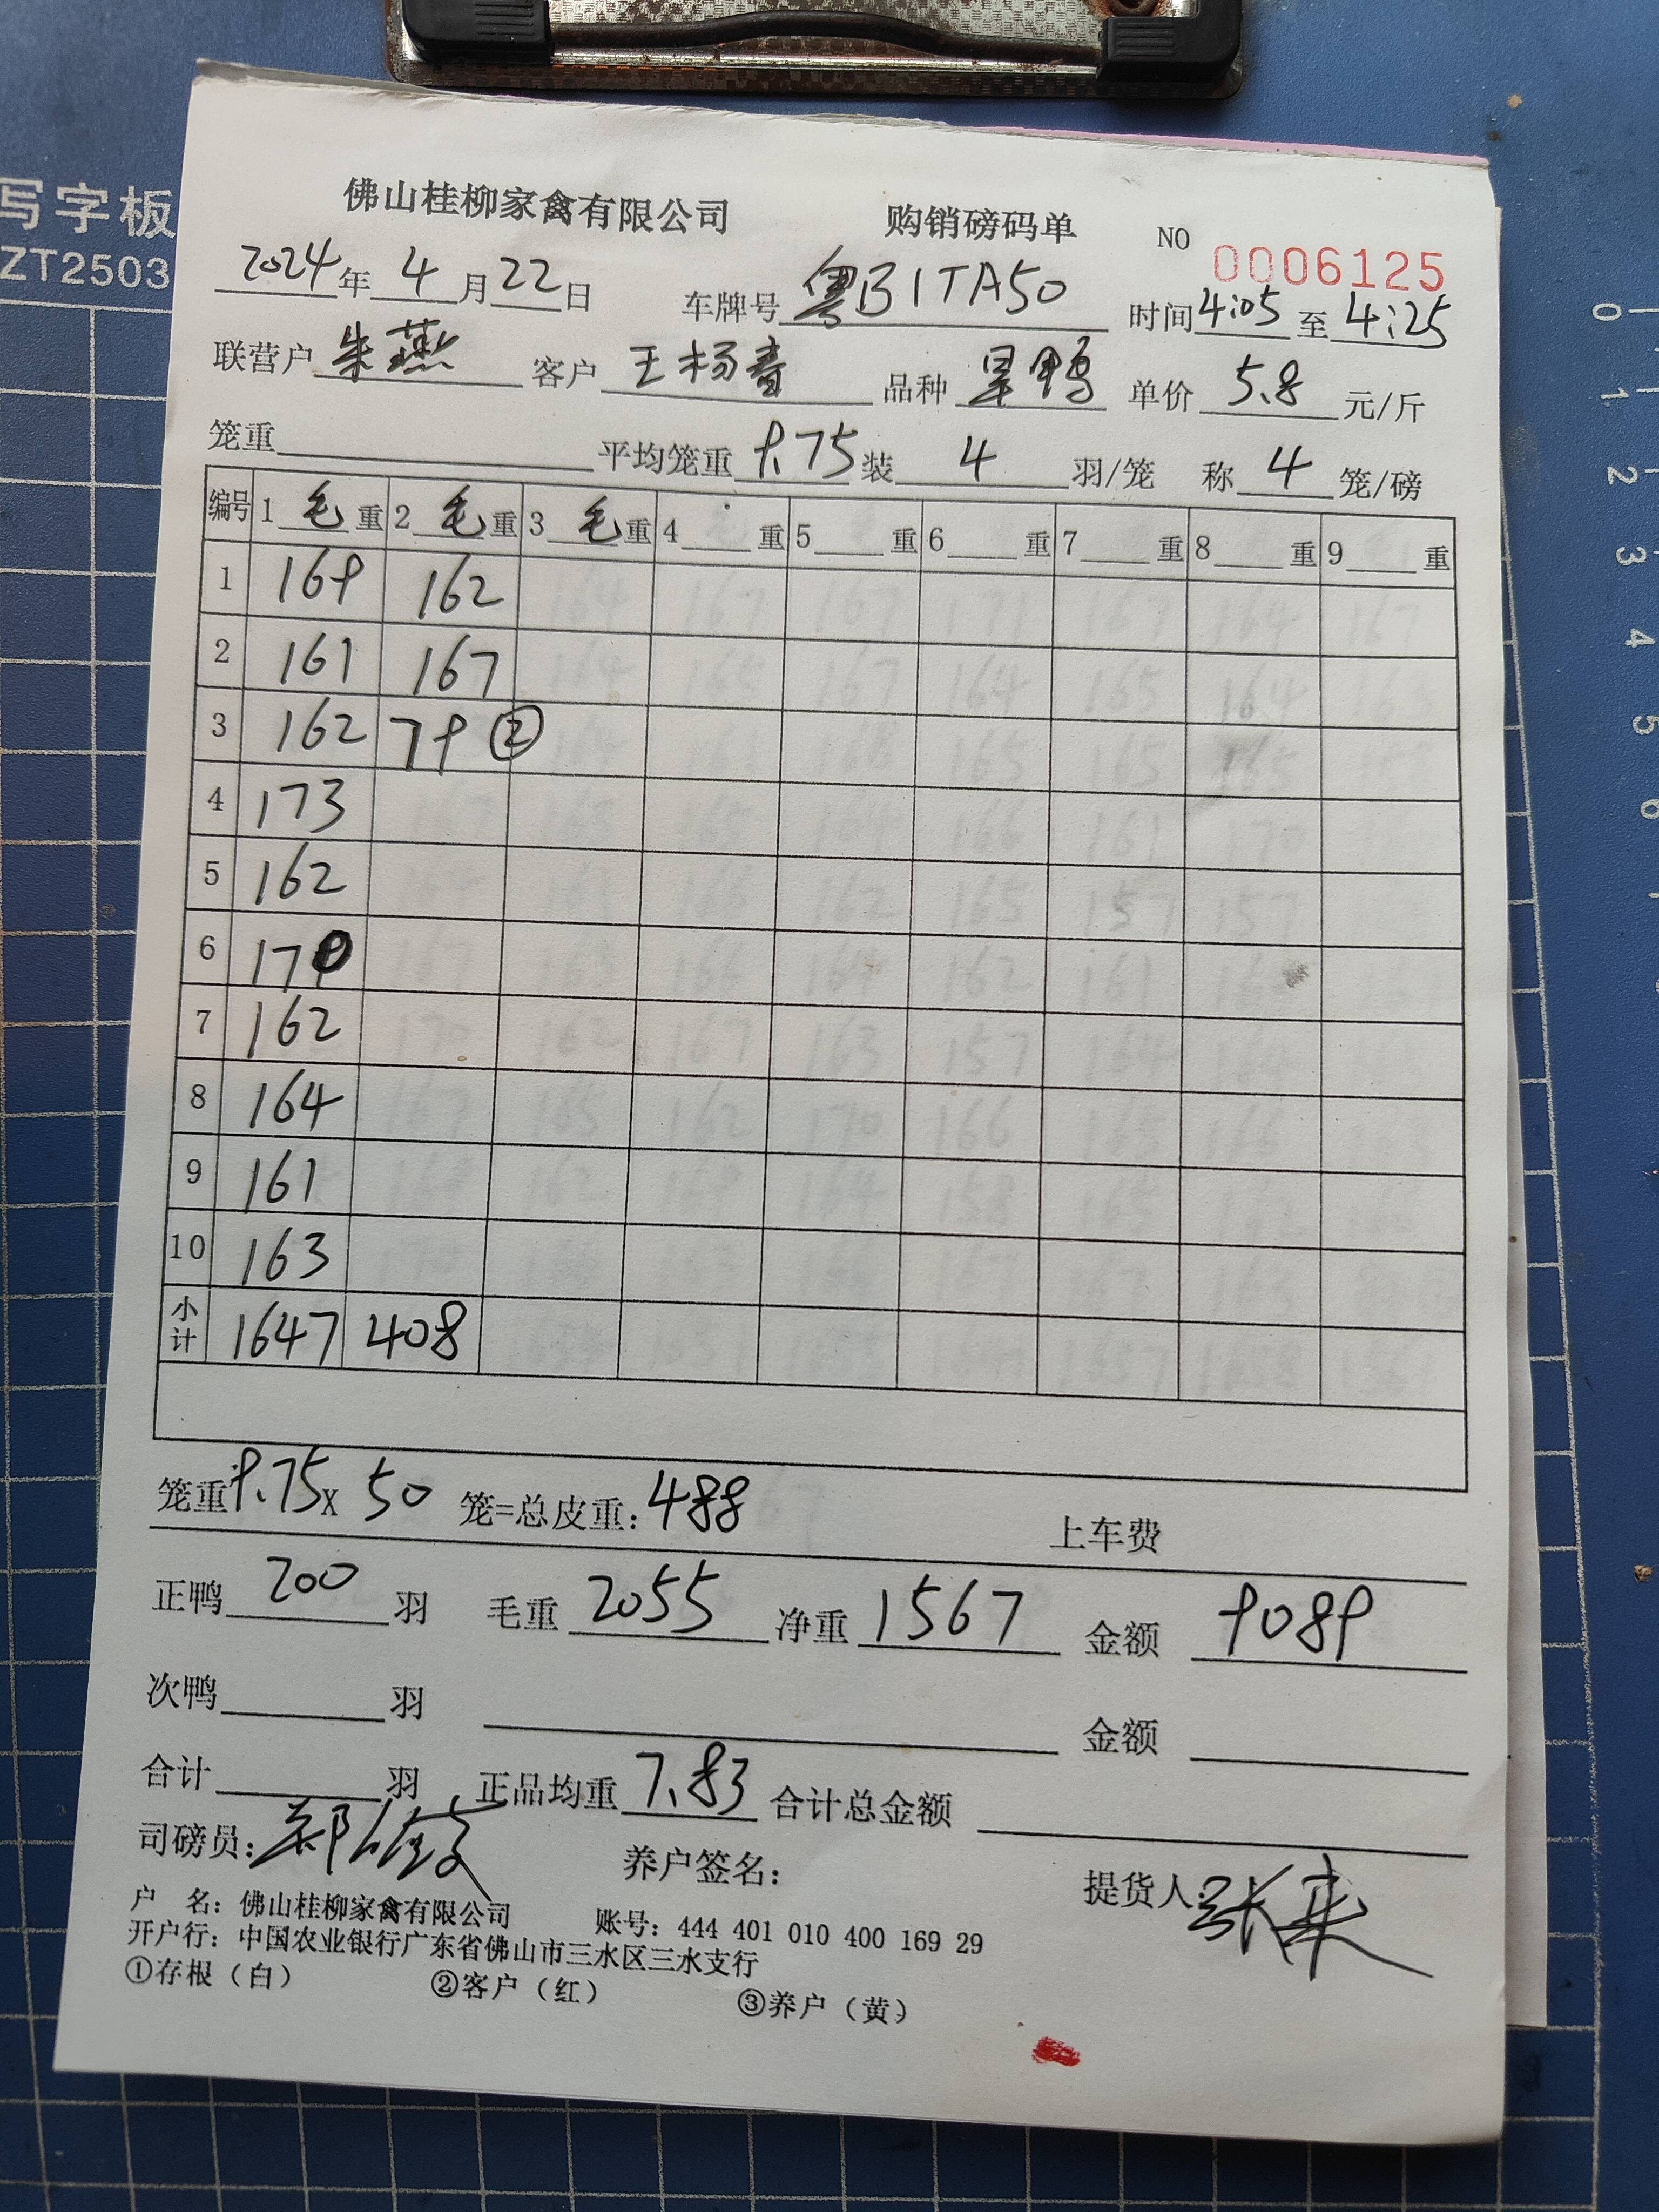 写字板
ZT2503
佛山桂柳家禽有限公司 购销磅码单 NO 0006125
2024年4月22日 车牌号 粤B1TA50 时间4:05至4:25
联营户 朱燕 客户 王杨春 品种 旱鸭 单价 5.8 元/斤
笼重 平均笼重 9.75 装 4 羽/笼 称 4 笼/磅
编号 1 毛 重 2 毛 重 3 毛 重 4 重 5 重 6 重 7 重 8 重 9 重
1 169 162
2 161 167
3 162 79 ②
4 173
5 162
6 170
7 162
8 164
9 161
10 163
小计 1647 408
笼重9.75X 50 笼=总皮重:488 上车费
正鸭 200 羽 毛重 2055 净重 1567 金额 9089
次鸭 羽 金额
合计 羽 正品均重 7.83 合计总金额
司磅员: 养户签名: 提货人:
户 名: 佛山桂柳家禽有限公司 账号: 444 401 010 400 169 29
开户行: 中国农业银行广东省佛山市三水区三水支行
①存根（白） ②客户（红） ③养户（黄）
0 1 2 3 4 5 6